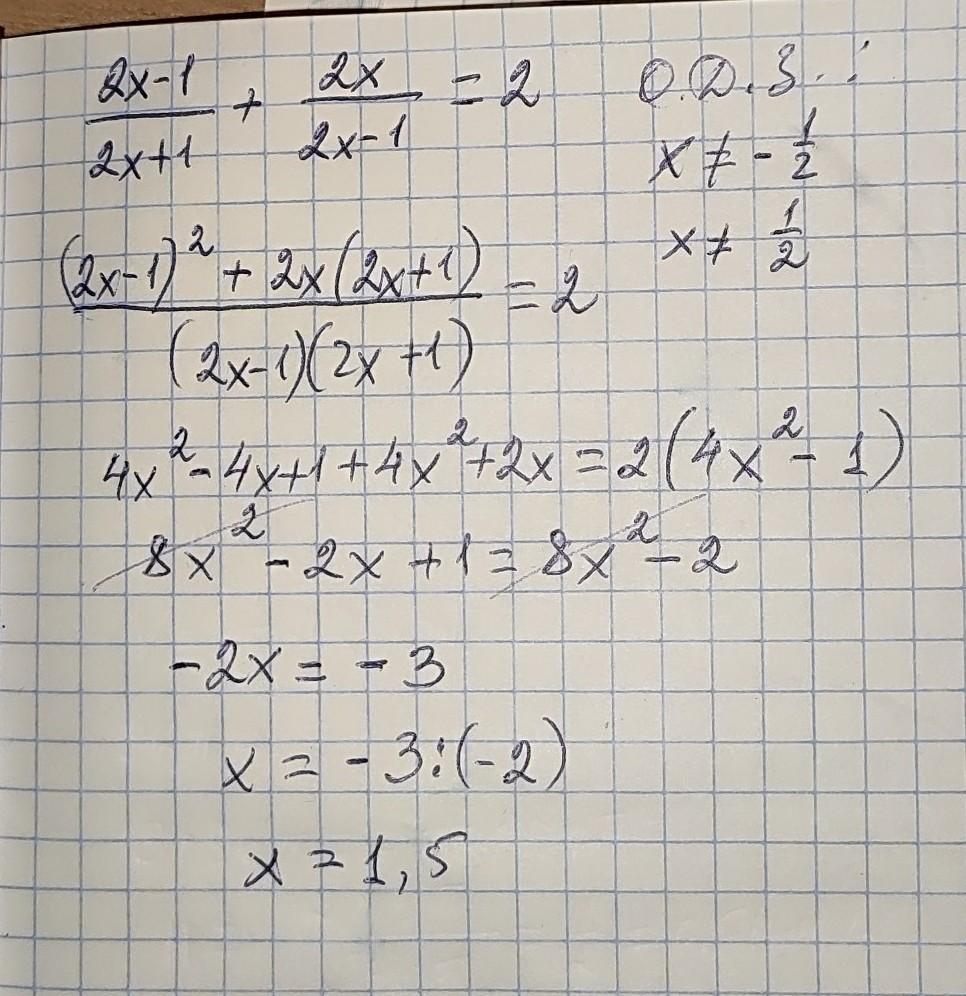 (2x-1)/(2x+1) + 2x/(2x-1) = 2
О.Д.З.:
x ≠ -1/2
x ≠ 1/2
((2x-1)² + 2x(2x+1))/((2x-1)(2x+1)) = 2
4x² - 4x+1+4x²+2x = 2(4x² - 1)
8x² - 2x +1 = 8x² - 2
-2x = -3
x = -3:(-2)
x = 1,5